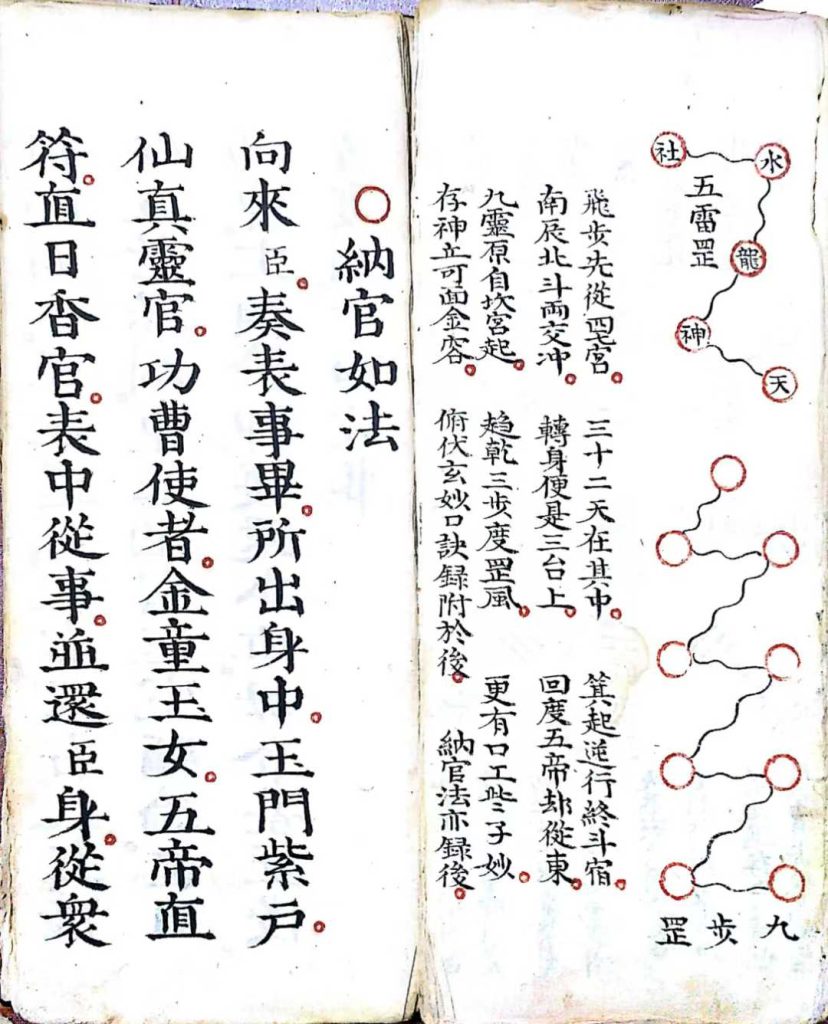 社
水
五雷罡
龍
神
天
九步罡
飛步先從四宮。三十二天在其中。箕起逆行終斗宿。
南辰北斗兩交冲。轉身便是三台上。回度五帝却從東。
九靈原自坎宮起。趋乾三步度罡風。更有口工些子妙。
存神立可面金容。俯伏玄妙口訣録附於後。納官法亦録後。
○納官如法
向來臣。奏表事畢。所出身中。玉門紫户。
仙真靈官。功曹使者。金童玉女。五帝直
符。直日香官。表中從事。並還臣身。從衆